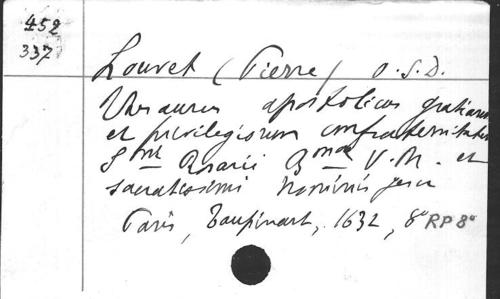 452
337
Louvet (Pierre) O.S.D.
Thesaurus apostolicus gratiarum
et privilegiorum confraternitatum
Smi Rosarii Bmae V.M. et
sacratissimi Nominis Jesu
Paris, Taupinart, 1632, 8° RP 8°